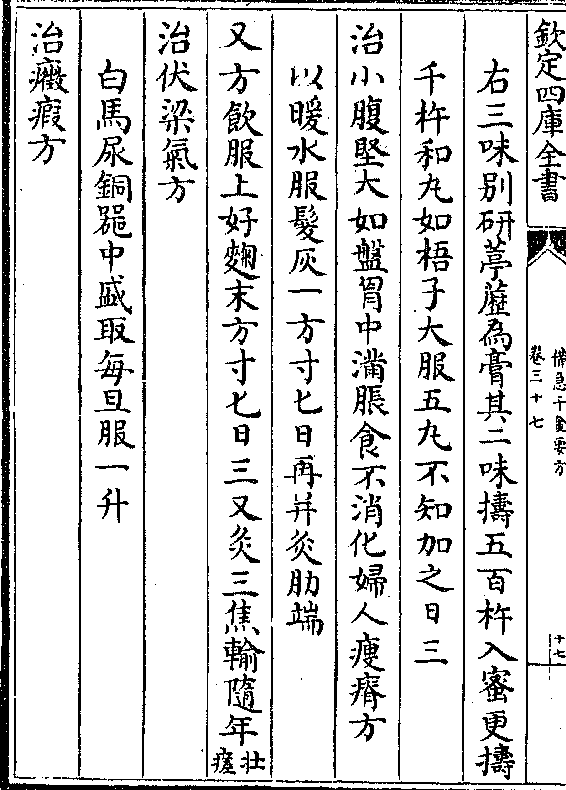 欽定四庫全書
備急千金要方
卷三十七
十七
右三味別研葶藶為膏其二味擣五百杵入蜜更擣
千杵和丸如梧子大服五丸不知加之日三
治小腹堅大如盤胷中滿脹食不消化婦人瘦瘠方
以暖水服髮灰一方寸匕日再并灸肋端
又方飲服上好麴末方寸匕日三又灸三焦輸隨年壯瘥
治伏梁氣方
白馬尿銅器中盛取每旦服一升
治癥瘕方